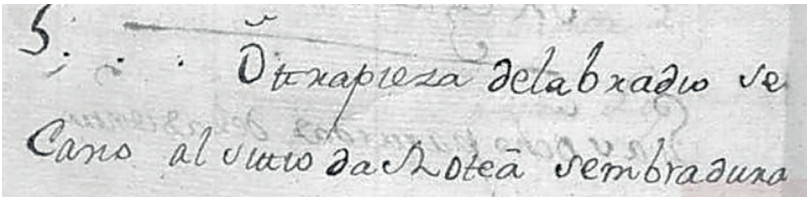 5. . . Otrapieza delabradio se
Cano al sitio da Roteā sembradura